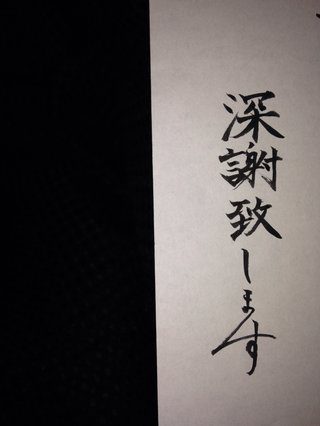 深謝致します